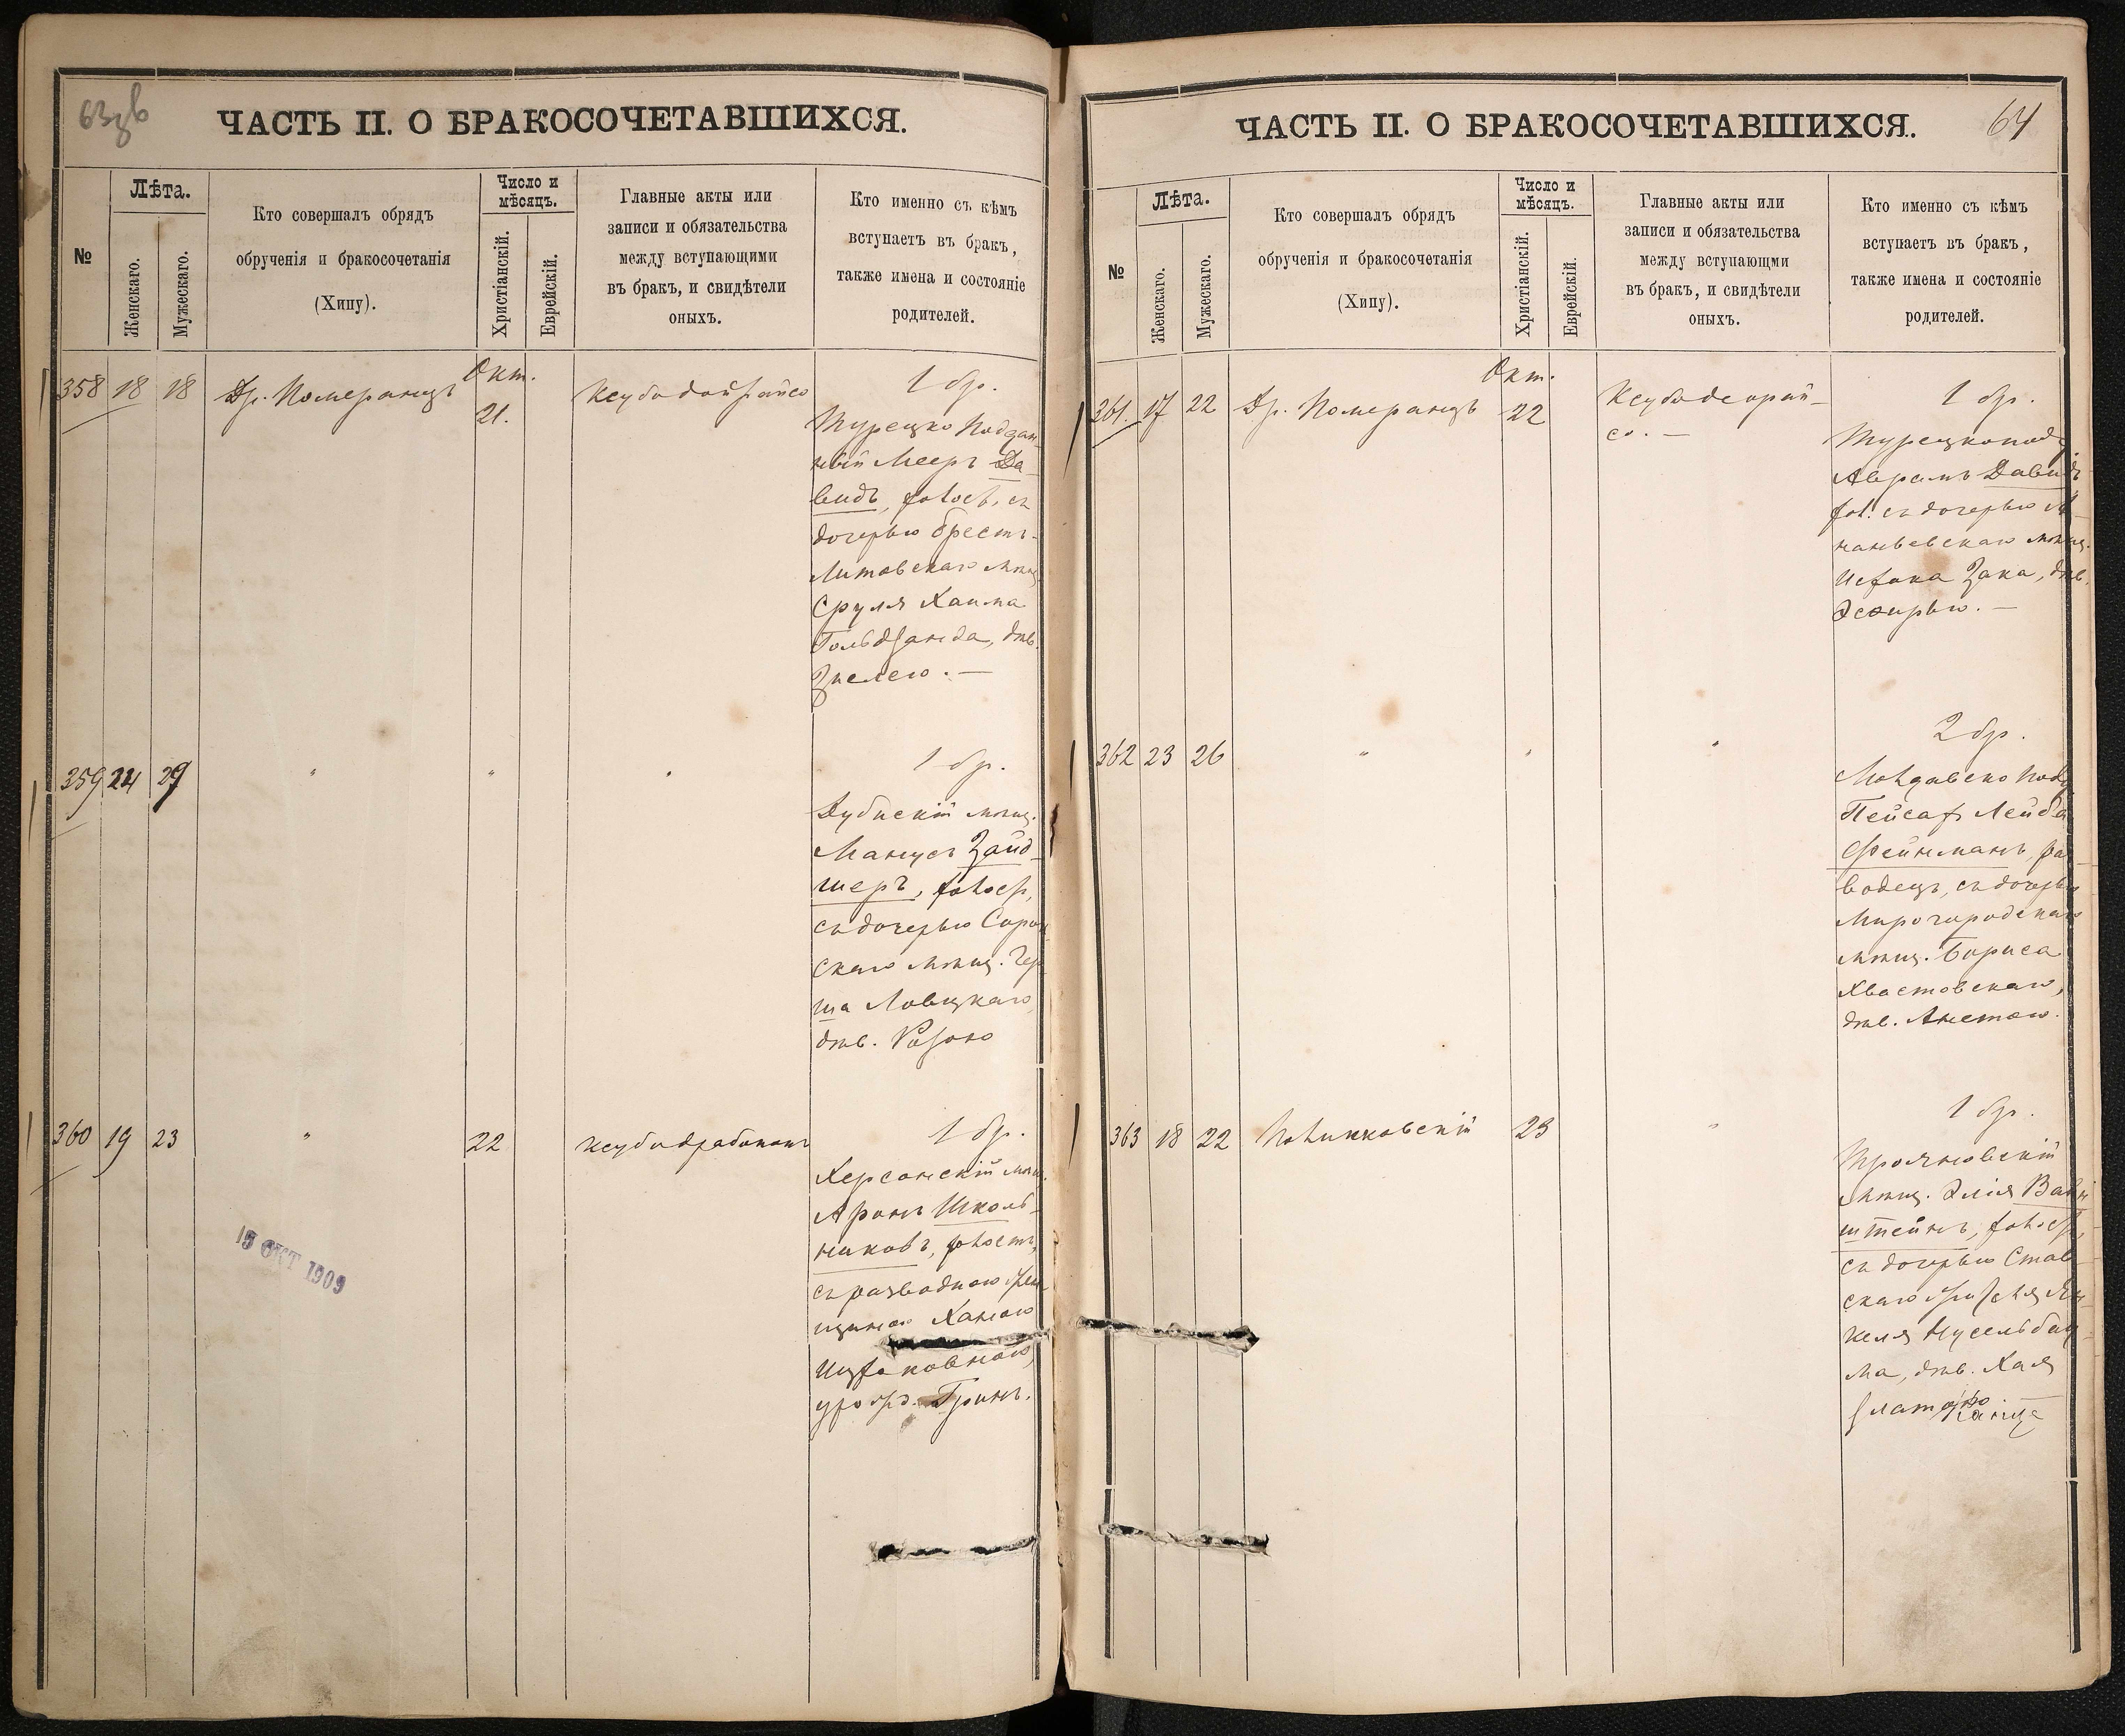 63 об
ЧАСТЬ II. О БРАКОСОЧЕТАВШИХСЯ.
№
Лѣта.
Женскаго.
Мужескаго.
Кто совершалъ обрядъ
обрученія и бракосочетанія
(Хипу).
Число и
мѣсяцъ.
Христіанскій.
Еврейскій.
Главные акты или
записи и обязательства
между вступающими
въ бракъ, и свидѣтели
оныхъ.
Кто именно съ кѣмъ
вступаетъ въ бракъ,
также имена и состояніе
родителей.
358 18 18 Др. Померанцъ Окт.
21.
1 бр.
Турецко поддан-
ный Мееръ Да-
видъ, холост, съ
дочерью Брестъ-
Литовскаго мѣщ.
Сруля Хаима
дѣв.
359 24 29 " " "
1 бр.
Дубнскій мѣщ.
Манусъ Зайд-
шеръ, холост,
съ дочерью Сорок-
скаго мѣщ. Гер-
ша Ловцкаго,
дѣв. Розою
360 19 23 " 22
1 бр.
Херсонскій мѣщ.
Аронъ Школь-
никовъ, холостъ,
съ разводною жен-
щиною Ханою
Ицковною,
урожд. Гринъ.
15 ОКТ 1909
64
ЧАСТЬ II. О БРАКОСОЧЕТАВШИХСЯ.
№
Лѣта.
Женскаго.
Мужескаго.
Кто совершалъ обрядъ
обрученія и бракосочетанія
(Хипу).
Число и
мѣсяцъ.
Христіанскій.
Еврейскій.
Главные акты или
записи и обязательства
между вступающми
въ бракъ, и свидѣтели
оныхъ.
Кто именно съ кѣмъ
вступаетъ въ бракъ,
также имена и состояніе
родителей.
361. 17 22 Др. Померанцъ Окт.
22
1 бр.
Турецкопод.
Аврамъ Давидъ
хол. съ дочерью А-
наньевскаго мѣщ.
Исаака Зака, дѣв.
Эсфирью. —
362 23 26 " " "
2 бр.
Молдавско под.
Пейсах Лейба
Фейнманъ, раз-
водецъ, съ дочерью
Миргородскаго
мѣщ. Бориса
Хвастовскаго,
дѣв. Анетою.
363 18 22 Полинковскій 23 "
1 бр.
Трояновскій
мѣщ. Элія Вайн-
штейнъ, холост,
съ дочерью Став-
скаго Ян-
келя Нусельбау-
ма, дѣв. Хая